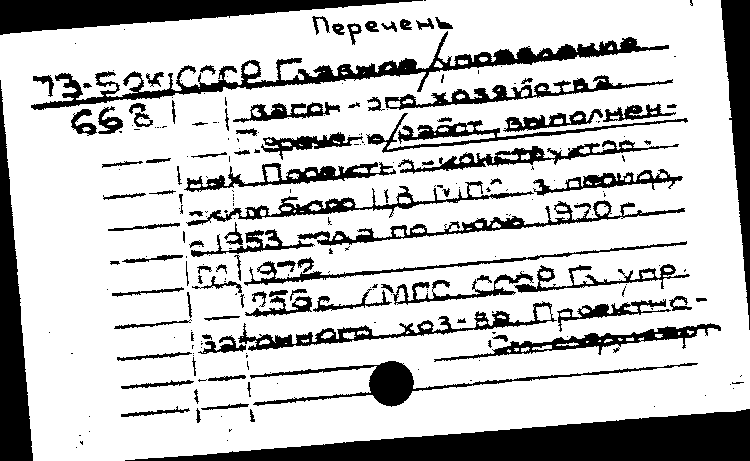 Перечень
73-50к СССР Главное управление
668 вагон-ого хозяйства.
Перечень работ, выполнен-
ных Проектно-конструктор-
ским бюро ЦВ МПС з период
с 1953 года по июль 1970 г.
М 1972
256 с. (МПС СССР Гл. упр.
вагонного хоз-ва. Проектно-
См. след. карт